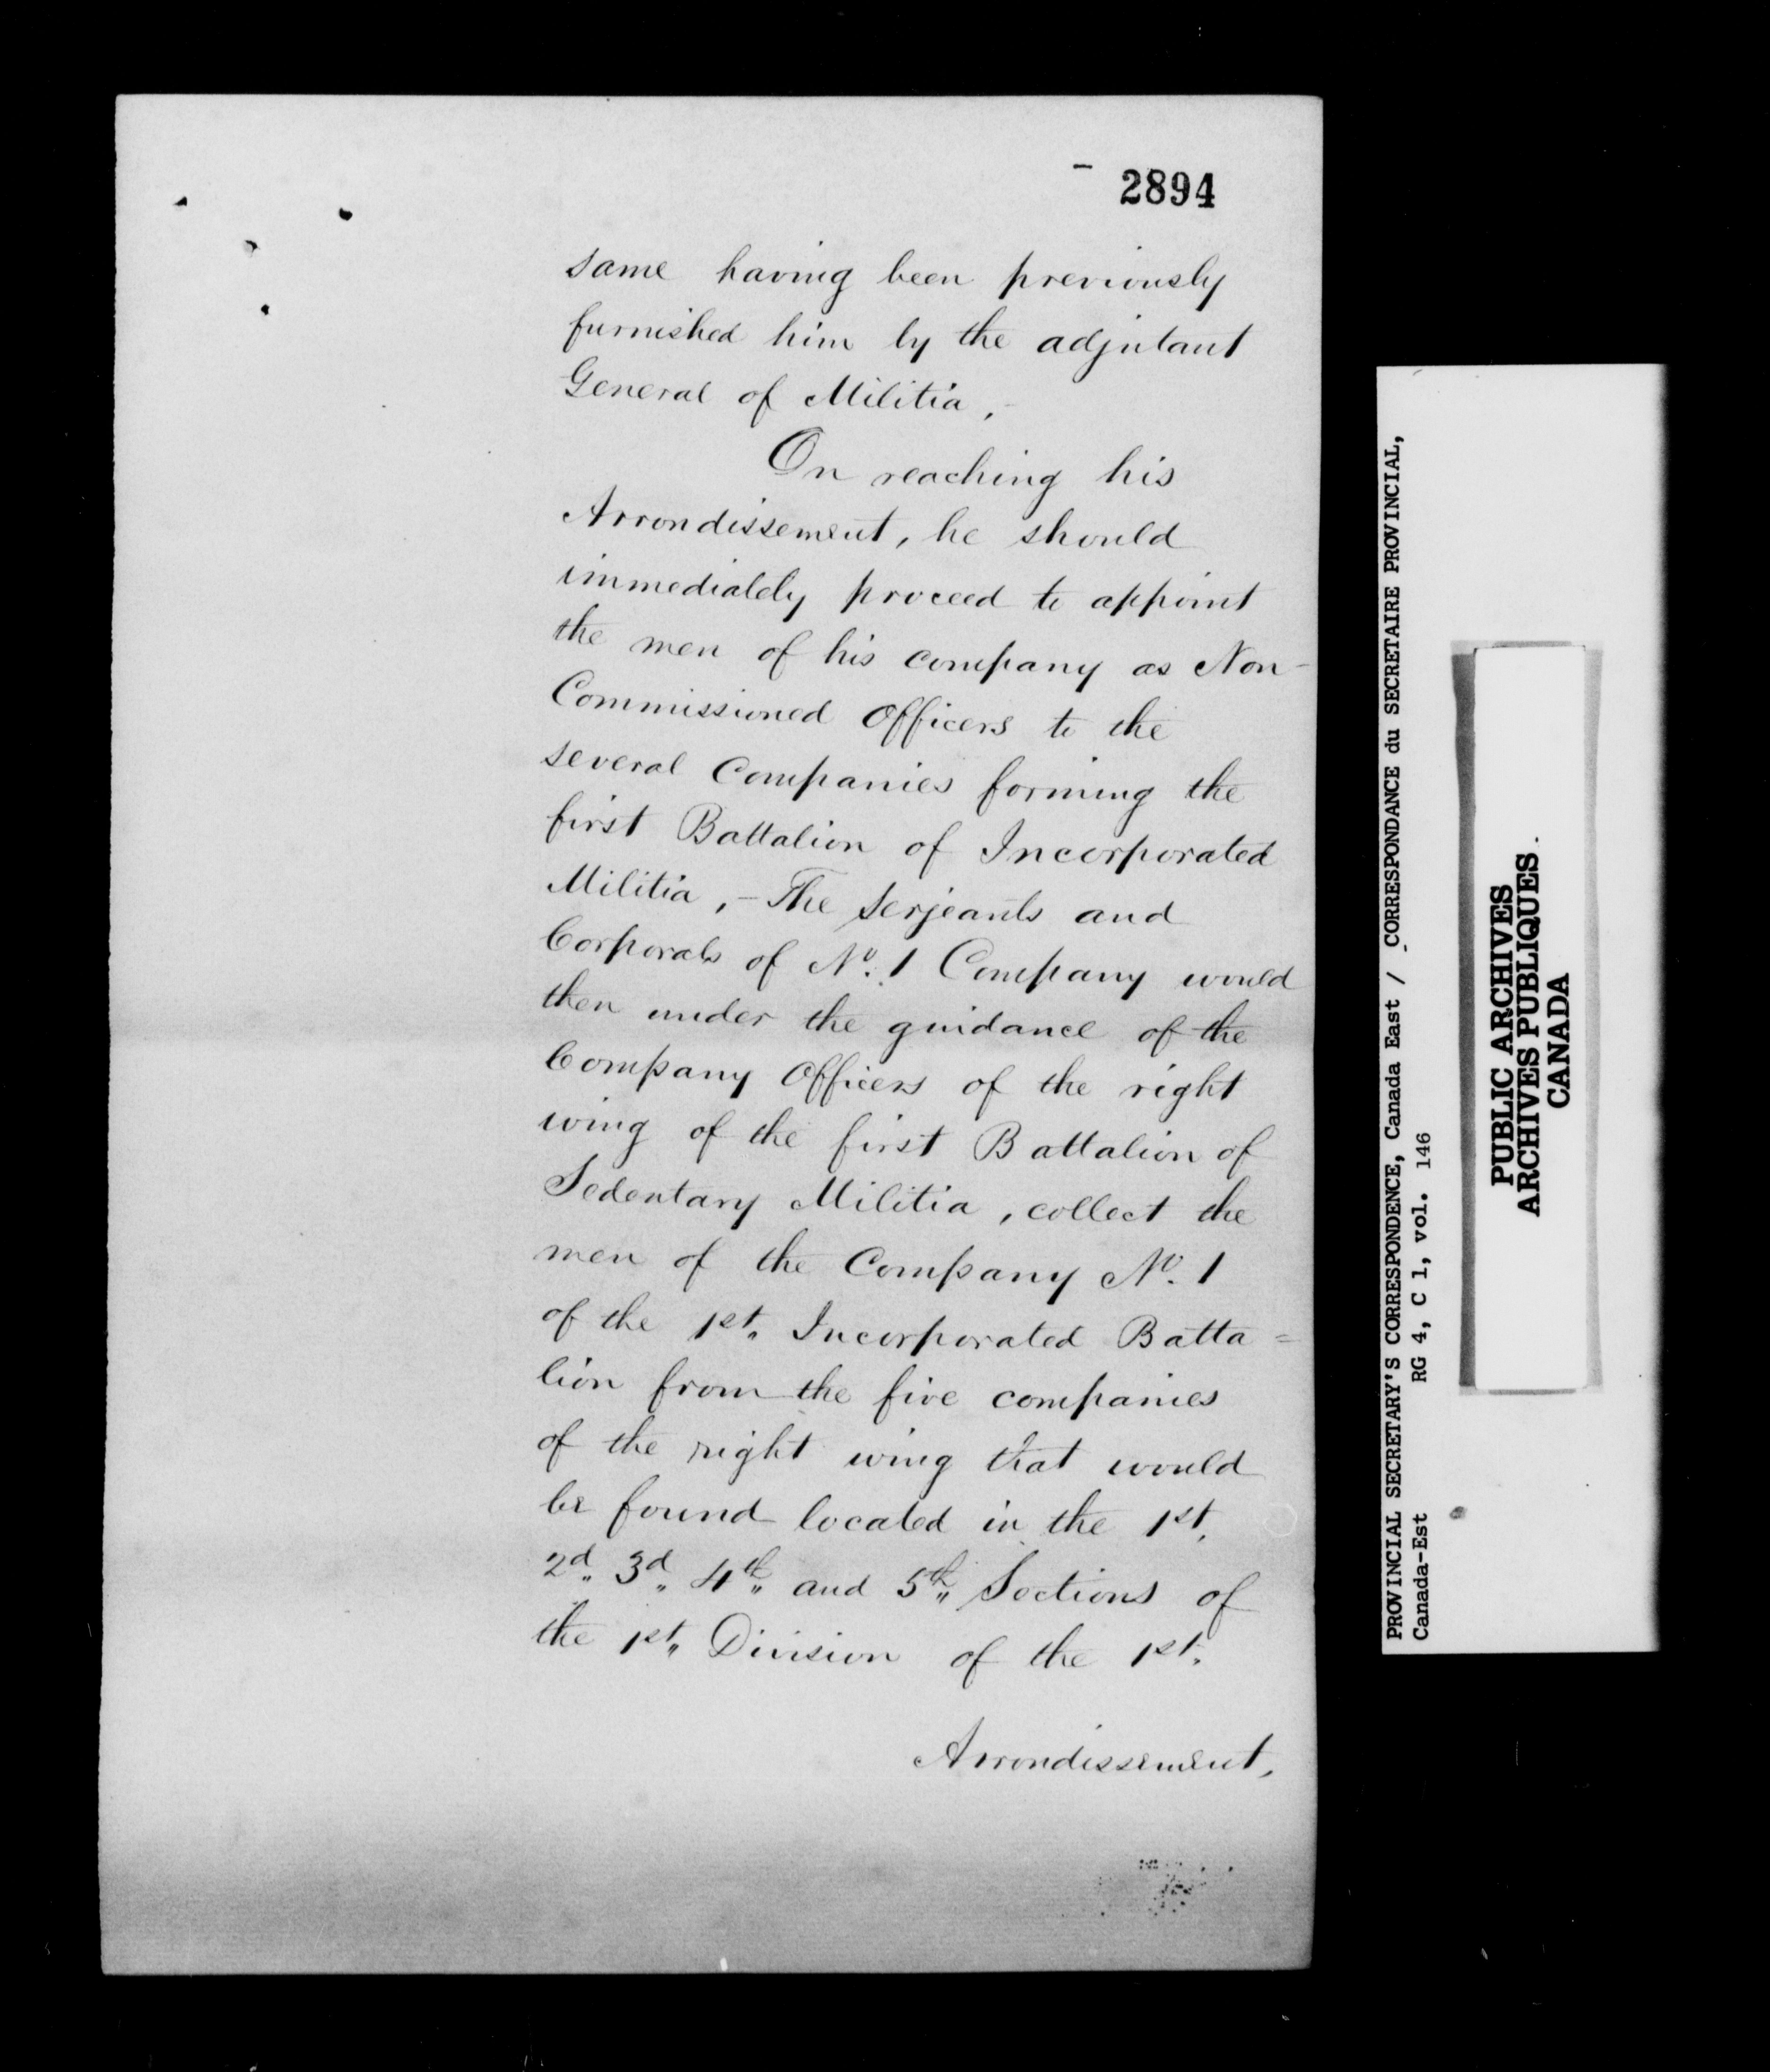 2894
same having been previously
furnished him by the adjutant
General of Militia,-
On reaching his
Arrondissement, he should
immediately proceed to appoint
the men of his company as Non-
Commissioned Officers to the
several Companies forming the
first Battalion of Incorporated
Militia,- The Serjeants and
Corporals of No. 1 Company would
then under the guidance of the
Company Officers of the right
wing of the first Battalion of
Sedentary Militia, collect the
men of the Company No. 1
of the 1st. Incorporated Batta=
lion from the five companies
of the right wing that would
be found located in the 1st.
2d. 3d. 4th. and 5th. Sections of
the 1st. Division of the 1st.
Arrondissement,
PROVINCIAL SECRETARY'S CORRESPONDENCE, Canada East / CORRESPONDANCE du SECRETAIRE PROVINCIAL,
Canada-Est RG 4, C 1, vol. 146
PUBLIC ARCHIVES
ARCHIVES PUBLIQUES
CANADA